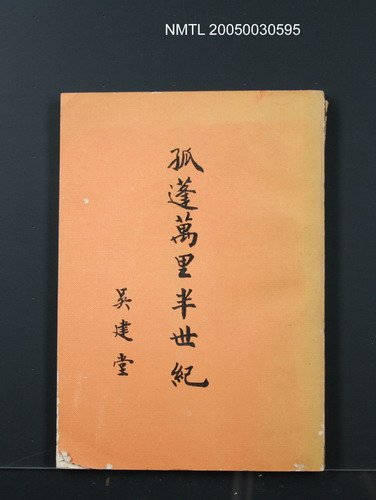 NMTL 20050030595
孤蓬萬里半世紀
吴建堂